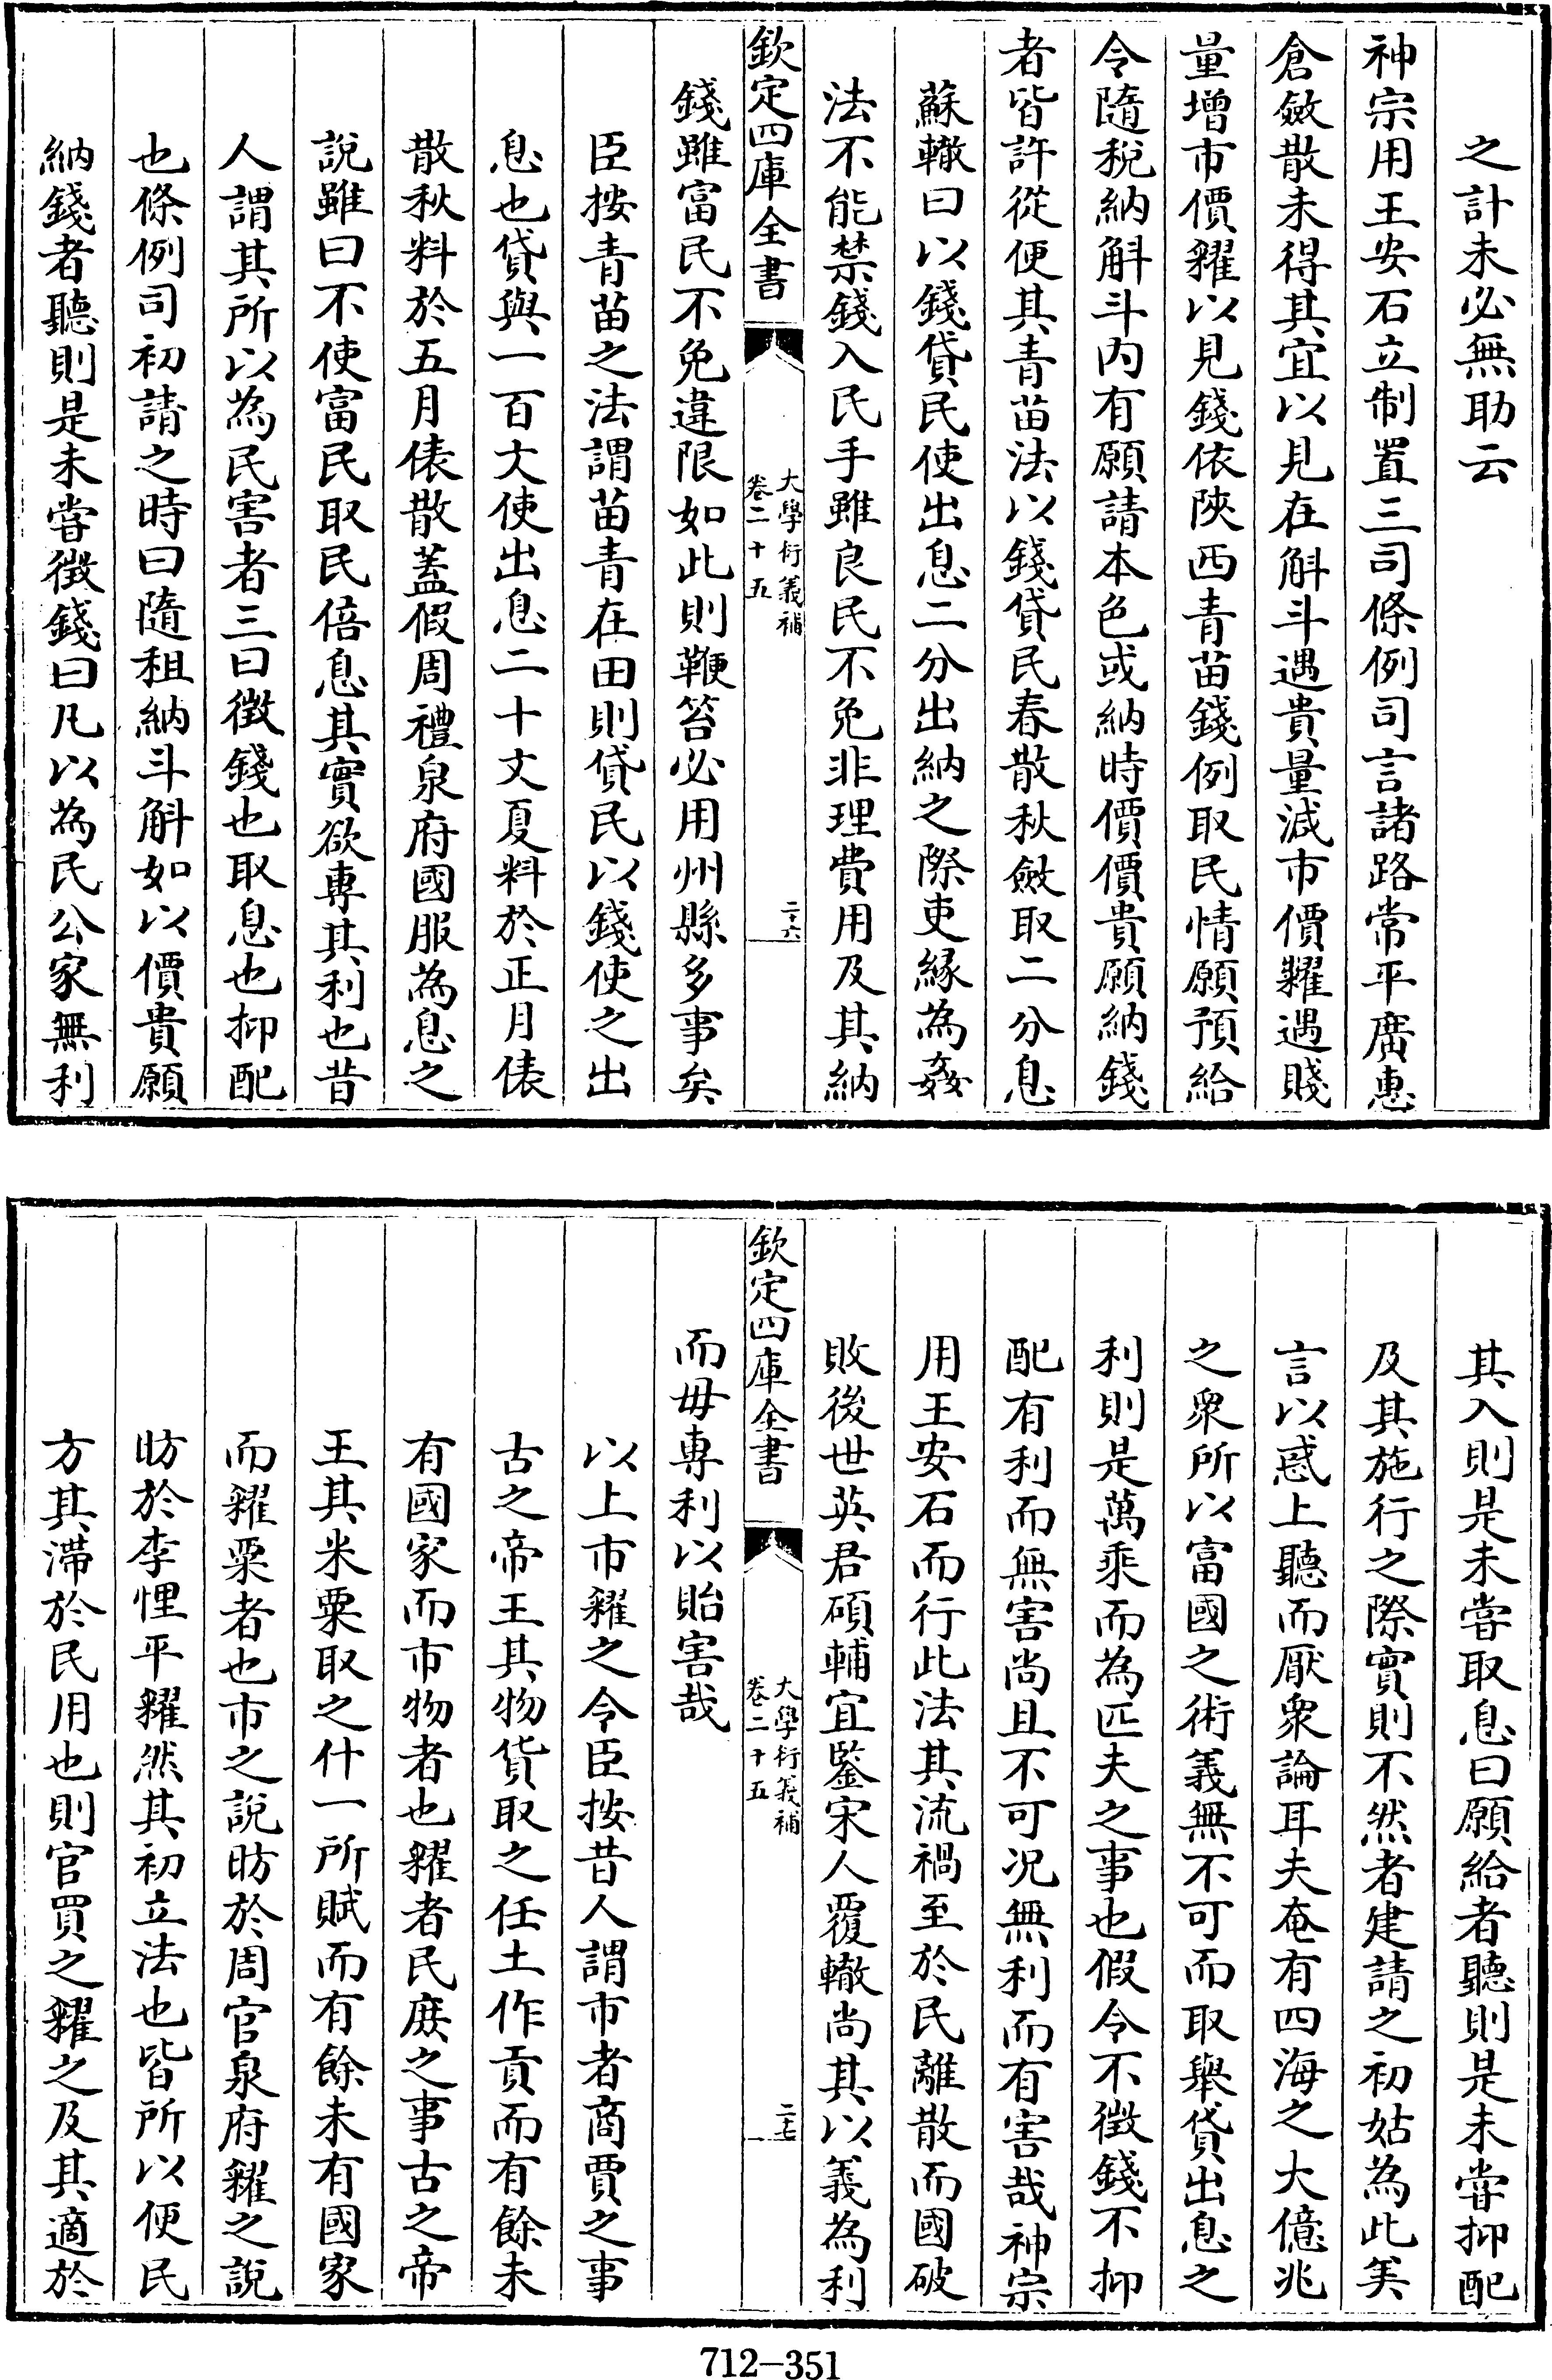 之計未必無助云
神宗用王安石立制置三司條例司言諸路常平廣惠
倉斂散未得其宜以見在斛斗遇貴量減市價糶遇賤
量增市價糴以見錢依陝西青苗錢例取民情願預給
令隨稅納斛斗内有願請本色或納時價價貴願納錢
者皆許從便其青苗法以錢貸民春散秋斂取二分息
蘇轍曰以錢貸民使出息二分出納之際吏緣為姦
法不能禁錢入民手雖良民不免非理費用及其納
欽定四庫全書
大學衍義補
卷二十五
二十六
錢雖富民不免違限如此則鞭笞必用州縣多事矣
臣按青苗之法謂苗青在田則貸民以錢使之出
息也貸與一百大使出息二十文夏料於正月俵
散秋料於五月俵散蓋假周禮泉府國服為息之
說雖曰不使富民取民倍息其實欲專其利也昔
人謂其所以為民害者三曰徴錢也取息也抑配
也條例司初請之時曰隨租納斗斛如以價貴願
納錢者聽則是未嘗徴錢曰凡以為民公家無利
其入則是未嘗取息曰願給者聽則是未嘗抑配
及其施行之際實則不然者建請之初姑為此美
言以惑上聽而厭衆論耳夫奄有四海之大億兆
之衆所以富國之術義無不可而取舉貸出息之
利則是萬乘而為匹夫之事也假令不徴錢不抑
配有利而無害尚且不可况無利而有害哉神宗
用王安石而行此法其流禍至於民離散而國破
敗後世英君碩輔宜鑒宋人覆轍尚其以義為利
欽定四庫全書
大學衍義補
卷二十五
二十七
而毋專利以貽害哉
以上市糴之令臣按昔人謂市者商賈之事
古之帝王其物貨取之任土作貢而有餘未
有國家而市物者也糴者民庶之事古之帝
王其米粟取之什一所賦而有餘未有國家
而糴粟者也市之說昉於周官泉府糴之說
昉於李悝平糴然其初立法也皆所以便民
方其滯於民用也則官買之糴之及其適於
712-351